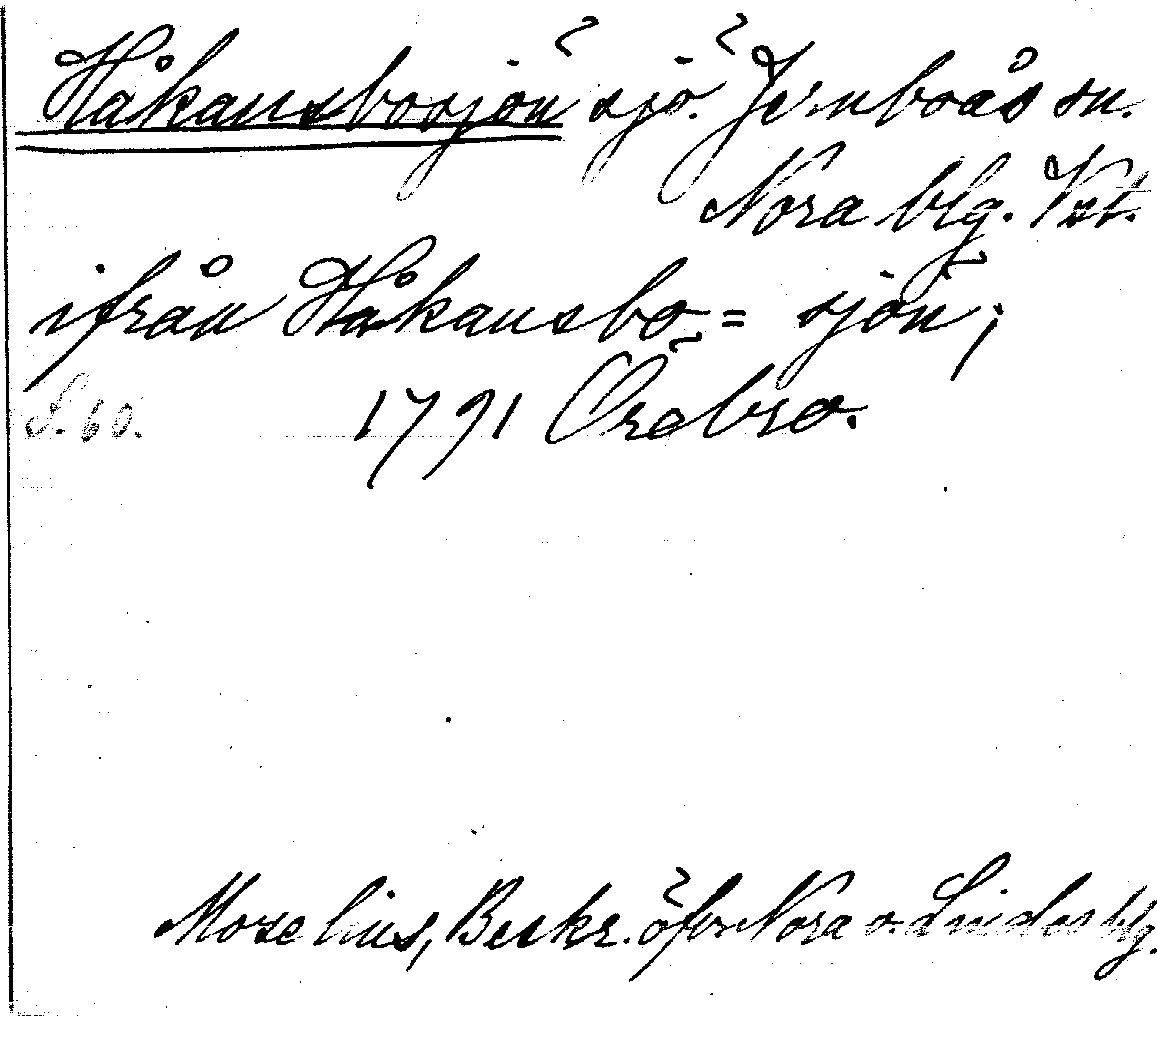 Håkansbosjön sjö. Jernboås sn.
Nora blg. Vst.
ifrån Håkansbo = sjön;
S. 60. 1791 Örebro.
Moselius, Beskr. öfver Nora o. Lindes blg.